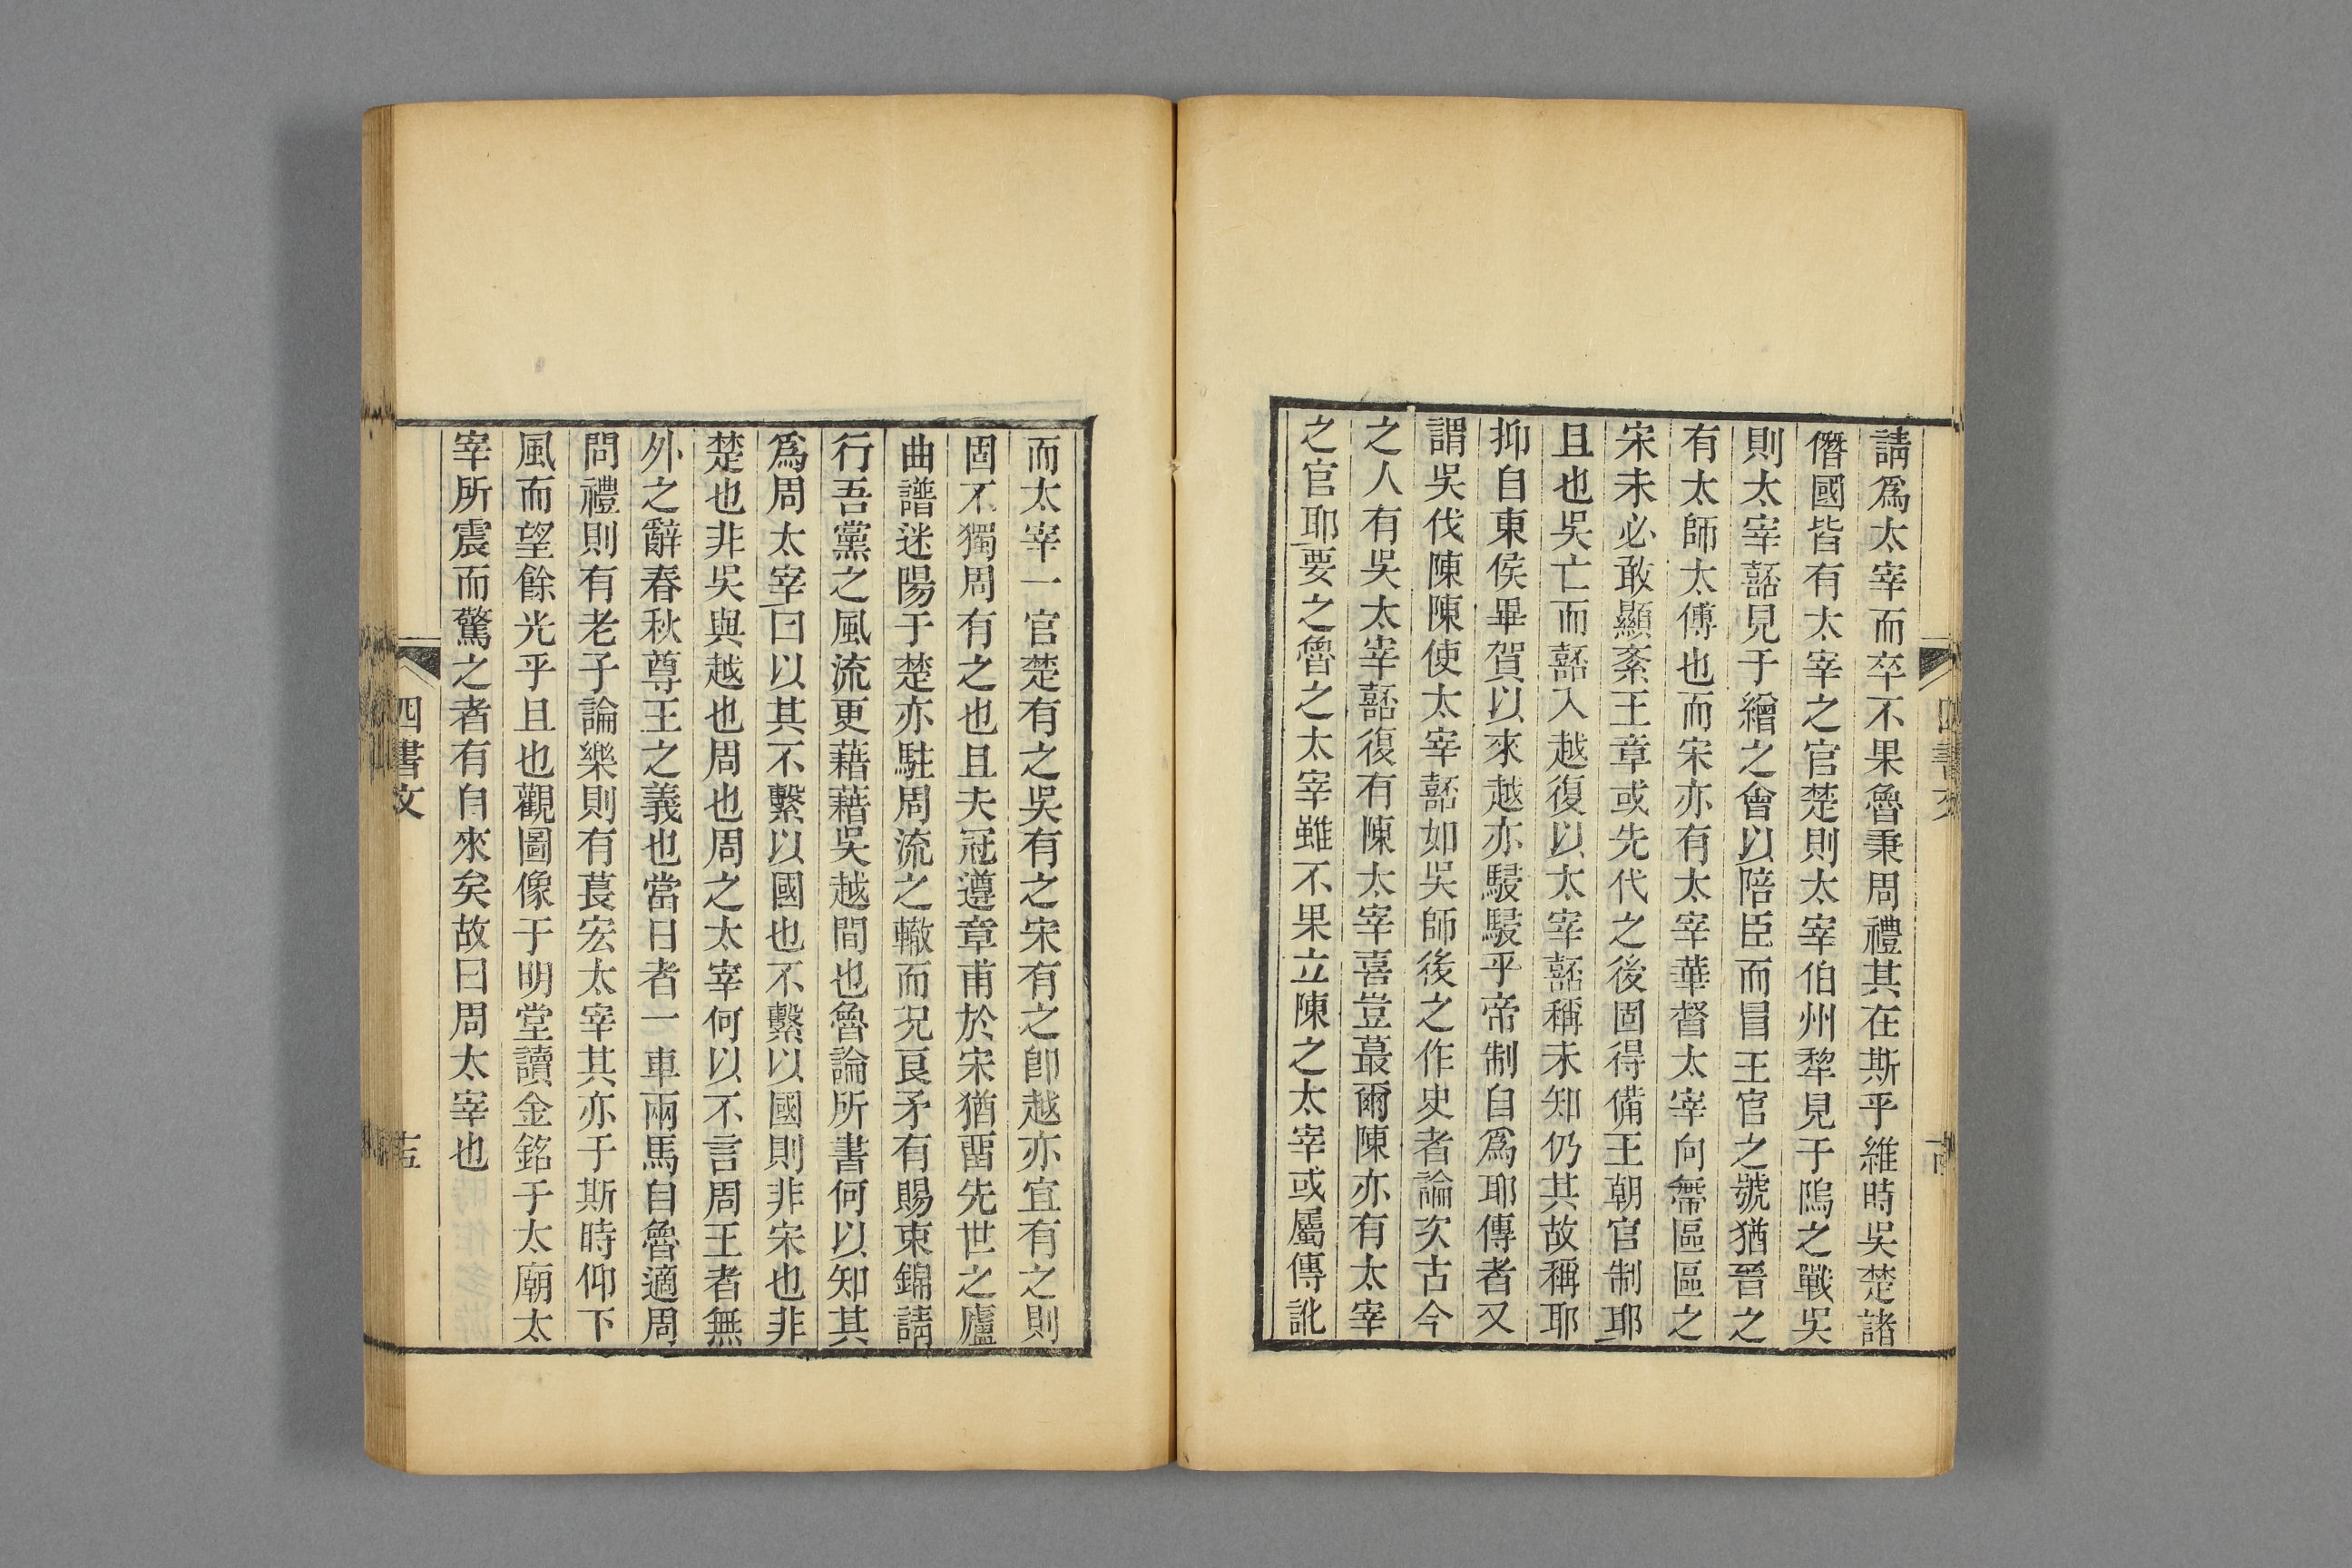 請爲太宰而卒不果魯秉周禮其在斯乎維時吳楚諸
僭國皆有太宰之官楚則太宰伯州犂見于隖之戰吳
則太宰嚭見于繒之會以陪臣而冒王官之號猶晉之
有太師太傅也而宋亦有太宰華督太宰向帶區區之
宋未必敢顯紊王章或先代之後固得備王朝官制耶
且也吳亡而嚭入越復以太宰嚭稱未知仍其故稱耶
抑自東侯畢賀以來越亦駸駸乎帝制自爲耶傳者又
謂吳伐陳陳使太宰嚭如吳師後之作史者論次古今
之人有吳太宰嚭復有陳太宰喜豈蕞爾陳亦有太宰
之官耶要之魯之太宰雖不果立陳之太宰或屬傳訛
四書文
而太宰一官楚有之吳有之宋有之卽越亦宜有之則
固不獨周有之也且夫冠遵章甫於宋猶畱先世之廬
曲譜迷陽于楚亦駐周流之轍而況良矛有賜束錦請
行吾黨之風流更藉藉吳越間也魯論所書何以知其
爲周太宰曰以其不繫以國也不繫以國則非宋也非
楚也非吳與越也周也周之太宰何以不言周王者無
外之辭春秋尊王之義也當日者一車兩馬自魯適周
問禮則有老子論樂則有萇宏太宰其亦于斯時仰下
風而望餘光乎且也觀圖像于明堂讀金銘于太廟太
宰所震而驚之者有自來矣故曰周太宰也
四書文